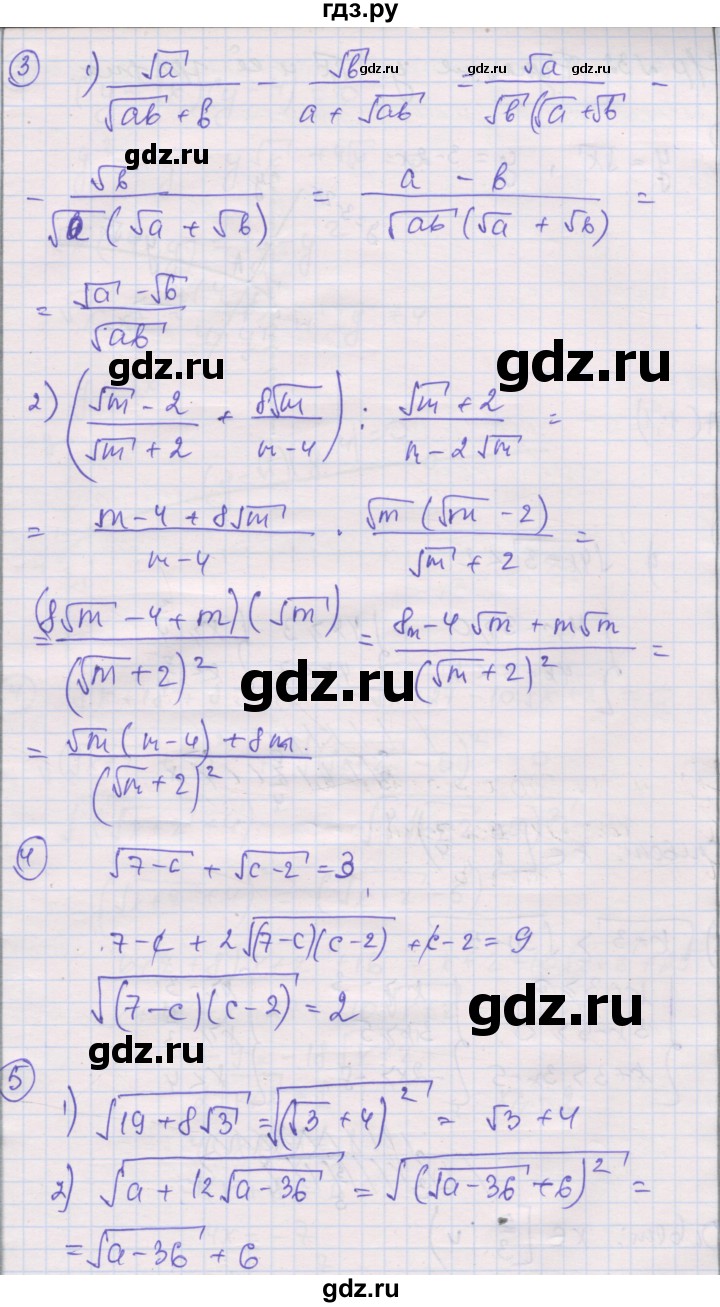 гдз.ру
③ 1) √a/(√ab + b) − √b/(a + √ab) = √a/(√b(√a + √b) −
gdz.ru gdz.ru gdz.ru
gdz.ru
− √b/(√a(√a + √b)) = (a − b)/(√ab(√a + √b)) =
= (√a − √b)/√ab
gdz.ru
gdz.ru
2) ((√m − 2)/(√m + 2) + 8√m/(m − 4)) : (√m + 2)/(m − 2√m) =
= (m − 4 + 8√m)/(m − 4) · √m(√m − 2)/(√m + 2) =
= (8√m − 4 + m)(√m)/(√m + 2)² = (8m − 4√m + m√m)/(√m + 2)² =
gdz.ru
= (√m(m − 4) + 8m)/(√m + 2)²
gdz.ru
④ √7−c + √c−2 = 3
7 − c + 2√(7−c)(c−2) + c − 2 = 9
√(7−c)(c−2) = 2
gdz.ru
gdz.ru
⑤
1) √19 + 8√3 = √(√3 + 4)² = √3 + 4
2) √a + 12√a−36 = √(√a−36 + 6)² =
= √a−36 + 6
gdz.ru
gdz.ru